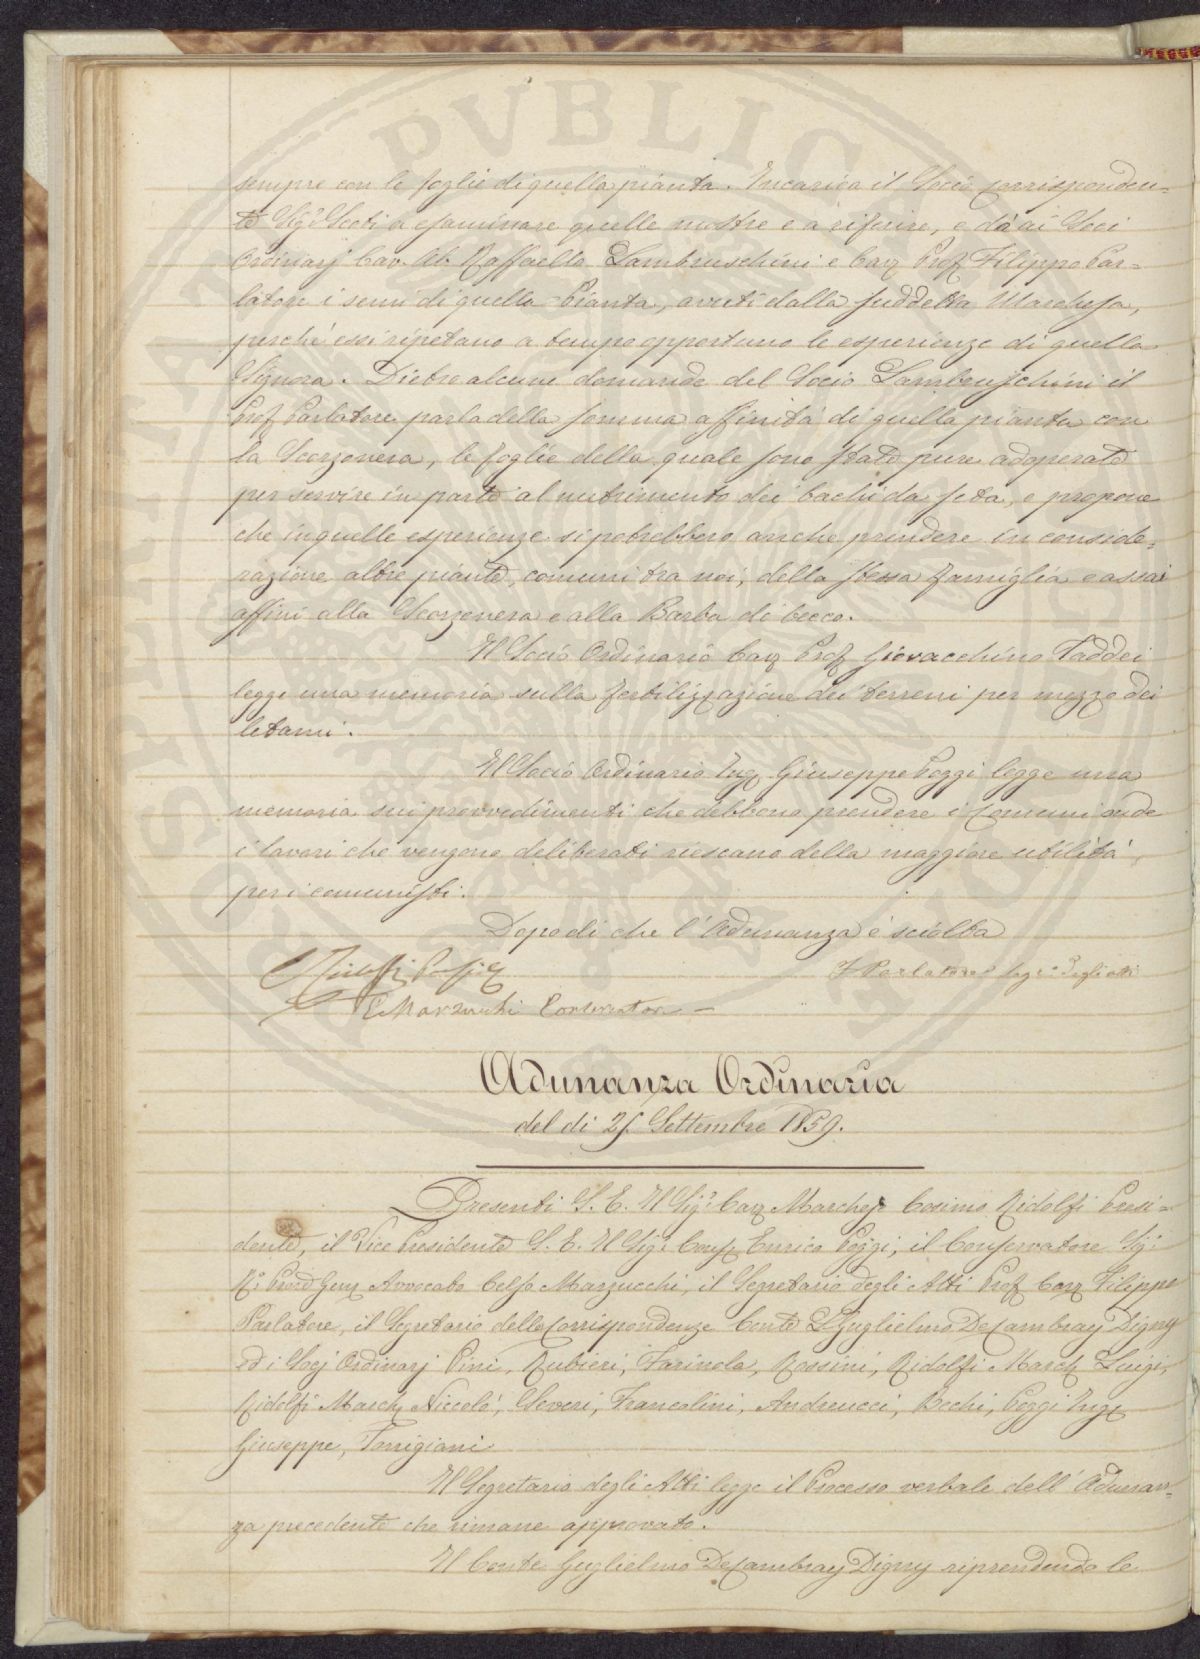 sempre con le foglie di quella pianta. Incarica il Socio corrisponden=
te Sigr. Scoti a esaminare quelle mostre e a riferire, e dà ai Soci
Ordinarj Cav. Ab. Raffaello Lambruschini e Cav. Prof. Filippo Par=
latore i semi di quella Pianta, avuti dalla suddetta Marchesa,
perché essi ripetano a tempo opportuno le esperienze di quella
Signora. Dietro alcune domande del Socio Lambruschini il
Prof. Parlatore parla della somma affinità di quella pianta con
la Scorzonera, le foglie della quale sono state pure adoperate
per servire in parte al nutrimento dei bachi da seta, e propone
che in quelle esperienze si potrebbero anche prendere in conside=
razione altre piante, comuni tra noi, della stessa famiglia e assai
affini alla Scorzonera e alla Barba di becco.
Il Socio Ordinario Cav. Prof. Giovacchino Taddei
legge una memoria sulla fertilizzazione dei terreni per mezzo dei
letami.
Il Socio Ordinario Ing. Giuseppe Poggi legge una
memoria sui provvedimenti che debbono prendere i Comuni onde
i lavori che vengono deliberati riescano della maggiore utilità
per i comunisti.
Dopo di che l'Adunanza è sciolta
C. Ridolfi Presid.
F. Parlatore Segr. degli atti
C. Marzucchi Conservatore
Adunanza Ordinaria
del dì 25 Settembre 1859.
Presenti S. E. Il Sigr. Cav. Marchese Cosimo Ridolfi Presi=
dente, il Vice Presidente S. E. Il Sigr. Cons. Enrico Poggi, il Conservatore Sigr.
R. Proc. Gen. Avvocato Celso Marzucchi, il Segretario degli Atti Prof. Cav. Filippo
Parlatore, il Segretario delle Corrispondenze Conte Guglielmo De Cambray Digny
ed i Socj Ordinarj Pini, Rubieri, Farinola, Rossini, Ridolfi March. Luigi,
Ridolfi March. Niccolò, Severi, Francolini, Andreucci, Bechi, Poggi Ing.
Giuseppe, Torrigiani
Il Segretario degli Atti legge il Processo verbale dell'Adunan=
za precedente che rimane approvato.
Il Conte Guglielmo De Cambray Digny riprendendo le